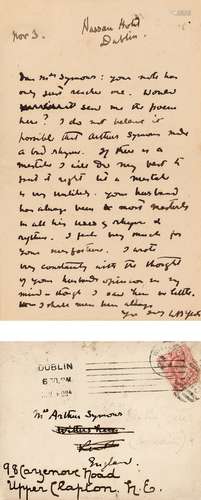 Nov 3.
Nassau Hotel
Dublin.
Dear Mrs Symons: your note has
only just reached me. Would
send me the poem
here? I do not believe it
possible that Arthur Symons made
a bad rhyme. If there is a
mistake I will do my best to
put it right but a mistake
is very unlikely. your husband
has always been most masterly
in all his uses of rhyme &
rythm. I feel very much for
your misfortune. I wrote
very constantly with the thought
of your husbands opinion in my
mind — though I saw him so little.
I shall miss him always.
Yrs WB Yeats
DUBLIN
6 PM
Mrs Arthur Symons
England.
98 Cazenove Road
Upper Clapton N.E.